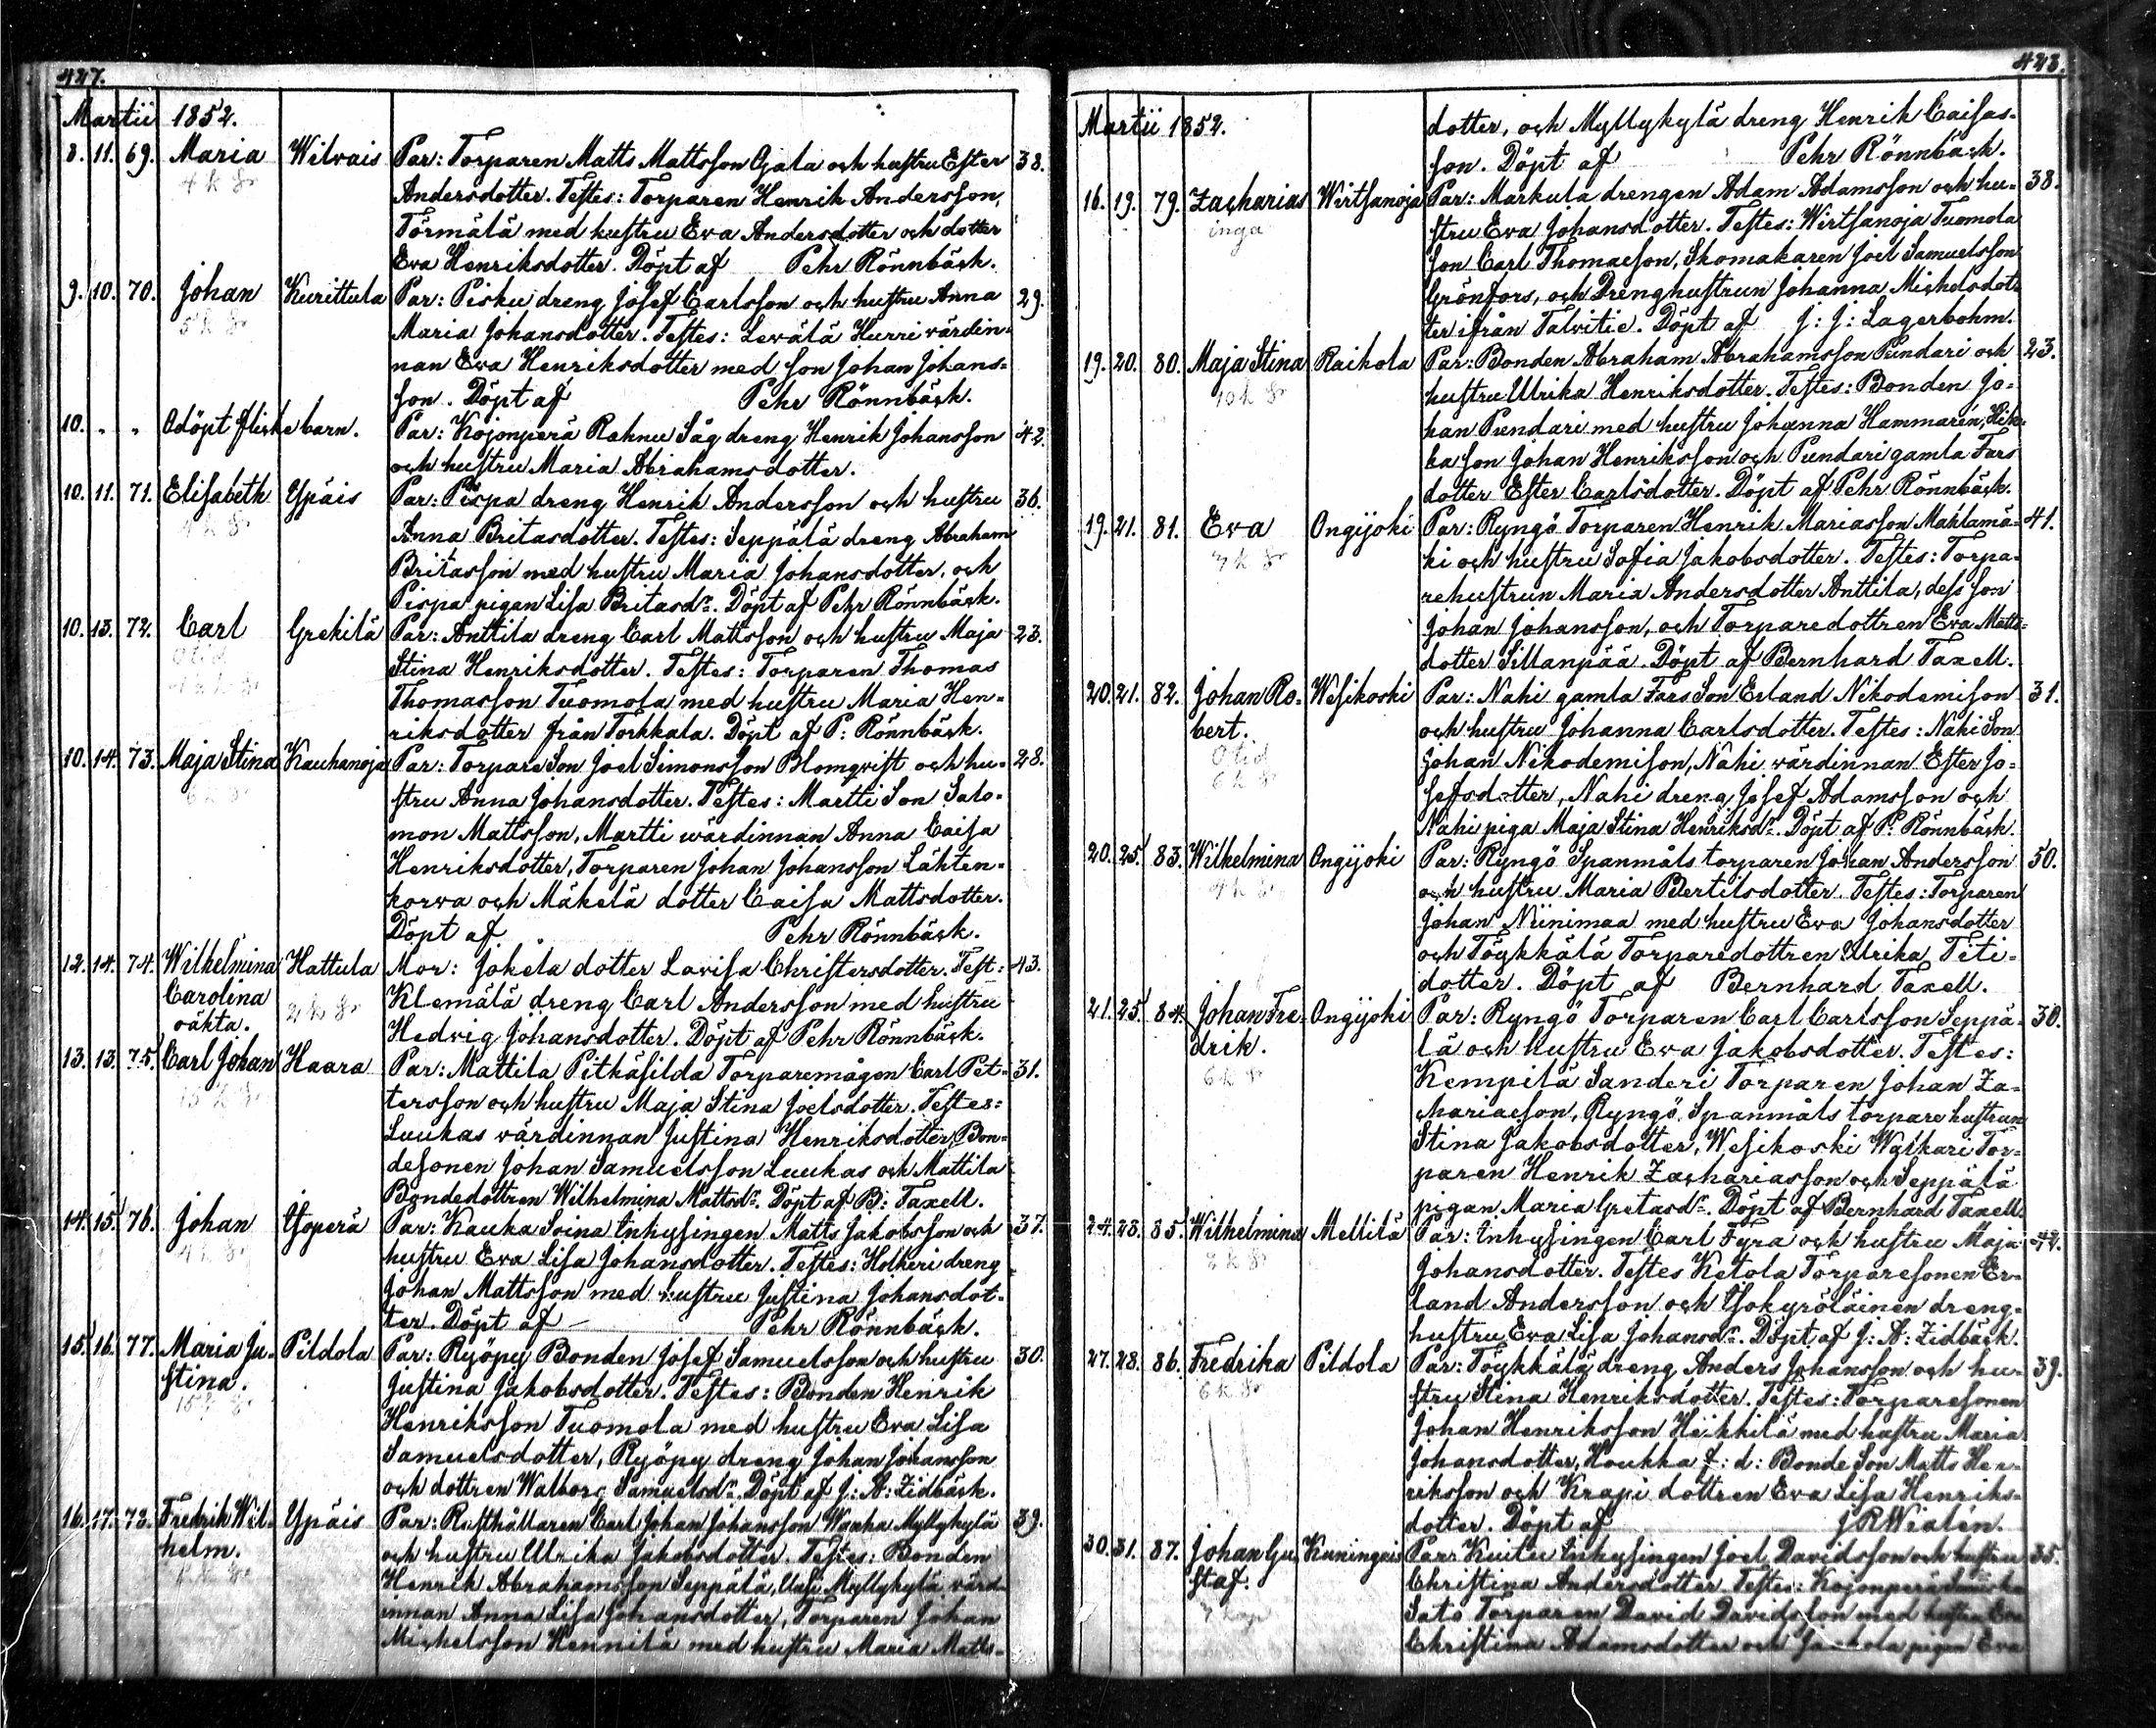 427.
Martii 1852.
8. 11. 69. Maria Wilvais Par: Torparen Matts Mattsson Ojala och hustru Ester 38.
4 k Sr Andersdotter. Testes: Torparen Henrik Andersson,
Törmälä med hustru Eva Andersdotter och dotter
Eva Henriksdotter. Döpt af Pehr Rönnbäck.
9. 10. 70. Johan Kurittula Par: Pisku dreng Josef Carlsson och hustru Anna 29.
5 k Sr Maria Johansdotter. Testes: Levälä Hurri värdin-
nan Eva Henriksdotter med son Johan Johans-
son. Döpt af Pehr Rönnbäck.
10. „ „ Odöpt flickebarn. Par: Kojonperä Rahnu Såg dreng Henrik Johansson 42.
och hustru Maria Abrahamsdotter.
10. 11. 71. Elisabeth Ypäis Par: Pispa dreng Henrik Andersson och hustru 36.
4 k Sr Anna Britasdotter. Testes: Seppälä dreng Abraham
Britasson med hustru Maria Johansdotter, och
Pispa pigan Lisa Britasdr. Döpt af Pehr Rönnbäck.
10. 13. 72. Carl Grekilä Par: Anttila dreng Carl Mattsson och hustru Maja 23.
Otid Stina Henriksdotter. Testes: Torparen Thomas
Thomasson Tuomola med hustru Maria Hen-
riksdotter från Torkkala. Döpt af P: Rönnbäck.
10. 14. 73. Maja Stina Kauhanoja Par: Torpare Son Joel Simonsson Blomqvist och hu- 28.
6 k Sr stru Anna Johansdotter. Testes: Martti Son Salo-
mon Mattsson, Martti wärdinnan Anna Caisa
Henriksdotter, Torparen Johan Johansson Lähten-
korva och Mäkelä dotter Caisa Mattsdotter.
Döpt af Pehr Rönnbäck.
12. 14. 74. Wilhelmina Hattula Mor: Jokela dotter Lovisa Christersdotter. Test: 43.
Carolina 2 k Sr Klemälä dreng Carl Andersson med hustru
oäkta. Hedvig Johansdotter. Döpt af Pehr Rönnbäck.
13. 13. 75. Carl Johan Haara Par: Mattila Pitkäsilda Torparemågen Carl Pet- 31.
15 k Sr tersson och hustru Maja Stina Joelsdotter. Testes:
Luukas värdinnan Justina Henriksdotter, Bon-
desonen Johan Samuelsson Luukas och Mattila
Bondedottren Wilhelmina Mattsdr. Döpt af B: Taxell.
14. 15. 76. Johan Isoperä Par: Kauka Soina Inhysingen Matts Jakobsson och 37.
4 k Sr hustru Eva Lisa Johansdotter. Testes: Holkeri dreng
Johan Mattsson med hustru Justina Johansdot-
ter. Döpt af Pehr Rönnbäck.
15. 16. 77. Maria Ju- Pildola Par: Ryöpy Bonden Josef Samuelsson och hustru 30.
stina. Justina Jakobsdotter. Testes: Bonden Henrik
15 k Sr Henriksson Tuomola med hustru Eva Lisa
Samuelsdotter, Ryöpy dreng Johan Johansson
och dottren Walborg Samuelsdr. Döpt af J: A: Zidbäck.
16. 17. 78. Fredrik Wil- Ypäis Par: Rusthållaren Carl Johan Johansson Wanha Myllykylä 39.
helm. och hustru Ulrika Jakobsdotter. Testes: Bonden
Henrik Abrahamsson Seppälä, Uusi Myllykylä värd-
innan Anna Lisa Johansdotter, Torparen Johan
Michelsson Hennilä med hustru Maria Matts-
428.
Martii 1852.
dotter, och Myllykylä dreng Henrik Caisas-
son. Döpt af Pehr Rönnbäck.
16. 19. 79. Zacharias Wirtsanoja Par: Markula drengen Adam Adamsson och hu- 38.
inga stru Eva Johansdotter. Testes: Wirtsanoja Tuomola
Son Carl Thomasson, Skomakaren Joel Samuelsson
Grönfors, och Drenghustrun Johanna Michelsdot-
ter ifrån Talvitie. Döpt af J: J: Lagerbohm.
19. 20. 80. Maja Stina Raikola Par: Bonden Abraham Abrahamsson Pundari och 23.
10 k Sr hustru Ulrika Henriksdotter. Testes: Bonden Jo-
han Pundari med hustru Johanna Hammarén,
son Johan Henriksson och Pundari gamla Fars
dotter Ester Carlsdotter. Döpt af Pehr Rönnbäck.
19. 21. 81. Eva Ongijoki Par: Ryngö Torparen Henrik Mariasson Mahlamä- 41.
7 k Sr ki och hustru Sofia Jakobsdotter. Testes: Torpa-
rehustrun Maria Andersdotter Anttila, dess son
Johan Johansson, och Torparedottren Eva Matts-
dotter Sillanpää. Döpt af Bernhard Taxell.
20. 21. 82. Johan Ro- Wesikoski Par: Nahi gamla Fars Son Erland Nikodemison 31.
bert. och hustru Johanna Carlsdotter. Testes: Nahi Son
Otid Johan Nikodemison, Nahi värdinnan Ester Jo-
6 k Sr sefsdotter, Nahi dreng Josef Adamsson och
Nahi piga Maja Stina Henriksdr. Döpt af P. Rönnbäck.
20. 25. 83. Wilhelmina Ongijoki Par: Ryngö Spanmåls torparen Johan Andersson 50.
4 k Sr och hustru Maria Bertilsdotter. Testes: Torparen
Johan Niinimaa med hustru Eva Johansdotter
och Töykkälä Torparedottren Ulrika Titi-
dotter. Döpt af Bernhard Taxell.
21. 25. 84. Johan Fre- Ongijoki Par: Ryngö Torparen Carl Carlsson Seppä- 30.
drik. lä och hustru Eva Jakobsdotter. Testes:
6 k Sr Kempilä Sanderi Torparen Johan Za-
chariasson, Ryngö Spanmåls torpare hustrun
Stina Jakobsdotter, Wesikoski Walkari Tor-
paren Henrik Zachariasson och Seppälä
pigan Maria Gretasdr. Döpt af Bernhard Taxell.
24. 28. 85. Wilhelmina Mellilä Par: Inhysingen Carl Fyra och hustru Maja 42.
2 k Sr Johansdotter. Testes Ketola Torparesonen Er-
land Andersson och Isokyröläinen dreng-
hustru Eva Lisa Johansdr. Döpt af J: A: Zidbäck.
27. 28. 86. Fredrika Pildola Par: Töykkälä dreng Anders Johansson och hu- 39.
6 k Sr stru Stina Henriksdotter. Testes: Torparesonen
Johan Henriksson Heikkilä med hustru Maria
Johansdotter, Houkka f: d: Bonde Son Matts Hen-
riksson och Krapi dottren Eva Lisa Henriks-
dotter. Döpt af J R Wialen.
30. 31. 87. Johan Gu- Kuningais Par: Kuitu Inhysingen Joel Davidsson och hustru 35.
staf. Christina Andersdotter. Testes: Kojonperä
Sato Torparen David Davidsson med hustru Eva
Christina Adamsdotter och pigan Eva